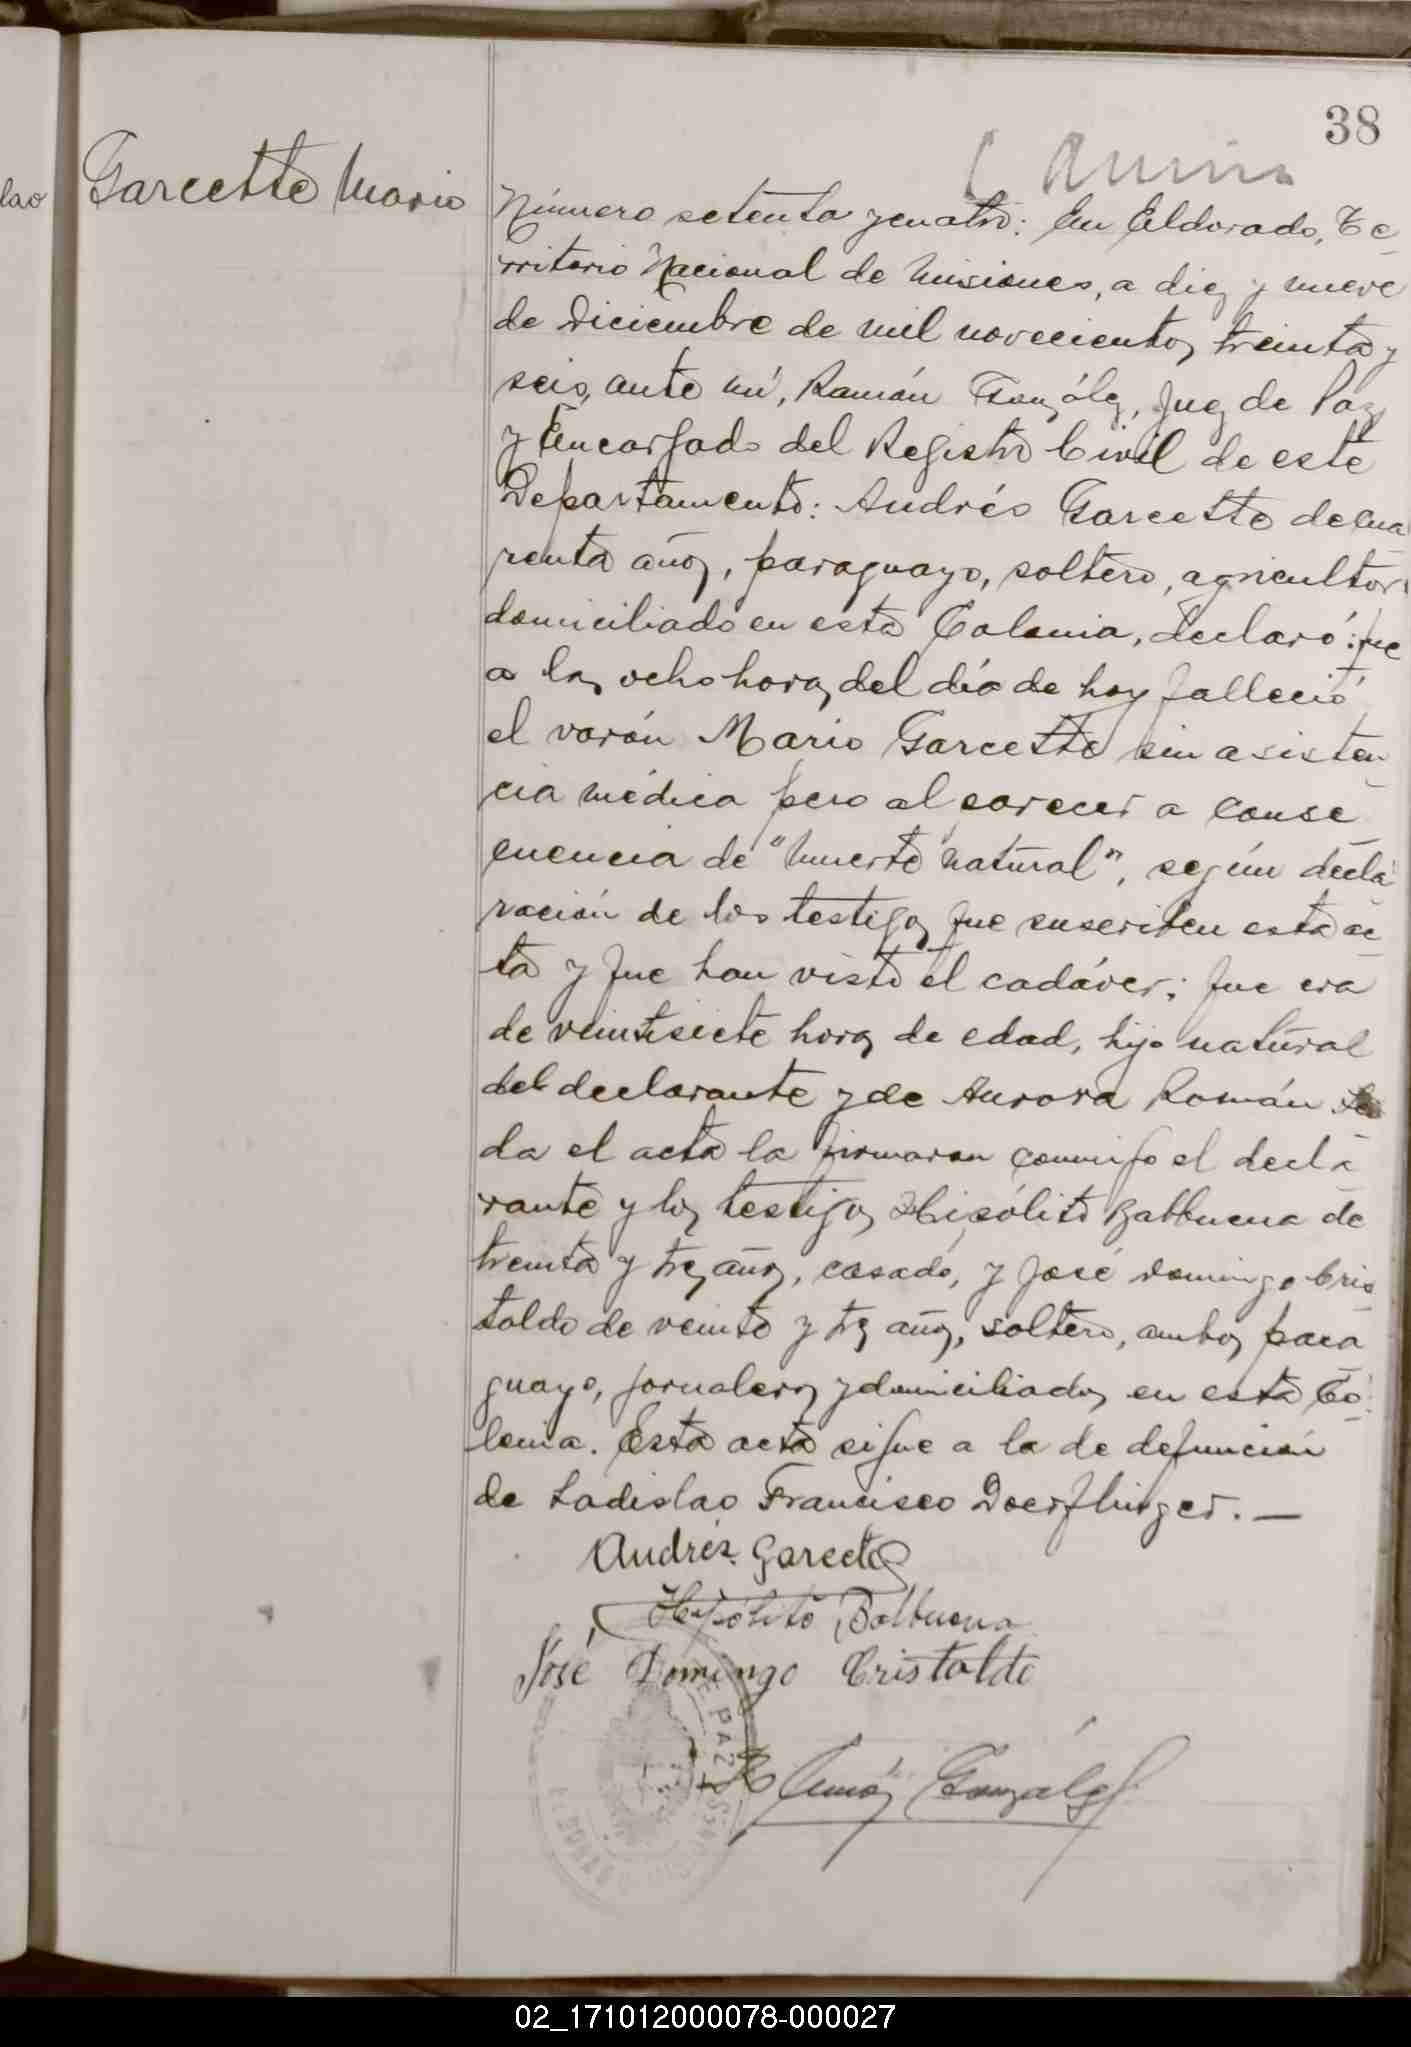 38
lao
Garcette Mario
Número setenta y cuatro: En Eldorado, Te
rritorio Nacional de Misiones, a diez y nueve
de Diciembre de mil novecientos treinta y
seis, ante mí, Ramón González, Juez de Paz
y Encargado del Registro Civil de este
Departamento: Andrés Garcette de cua
renta años, paraguayo, soltero, agricultor,
domiciliado en esta Colonia, declaró: que
a las ocho horas del día de hoy falleció
el varón Mario Garcette sin asisten
cia médica pero al parecer a conse
cuencia de "muerte natural", según decla
ración de los testigos que suscriben esta ac
ta y que han visto el cadáver; que era
de veintisiete horas de edad, hijo natural
del declarante y de Aurora Román. Leí
da el acta la firmaron conmigo el decla
rante y los testigos Hipólito Balbuena de
treinta y tres años, casado, y José Domingo Cris
taldo de veinte y tres años, soltero, ambos para
guayos, jornaleros y domiciliados en esta Co
lonia. Esta acta sigue a la de defunción
de Ladislao Francisco Doerflinger. —
Andrés Garcete
Hipólito Balbuena
José Domingo Cristaldo
E PAZ
Ramón González
02_171012000078-000027